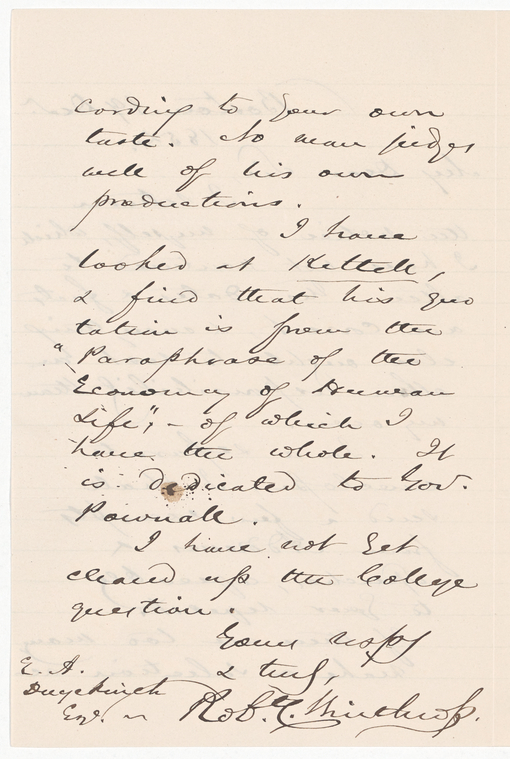 cording to your own
taste. No man judges
well of his own
productions.
I have
looked at Kettell,
& find that his quo
tation is from the
"Paraphrase of the
Economy of Human
Life"; - of which I
have the whole. It
is dedicated to Gov.
Pownall.
I have not yet
cleared up the College
question.
Yours respy
& truly,
Rob. C. Winthrop.
E. A.
Duyckinck
Esq.